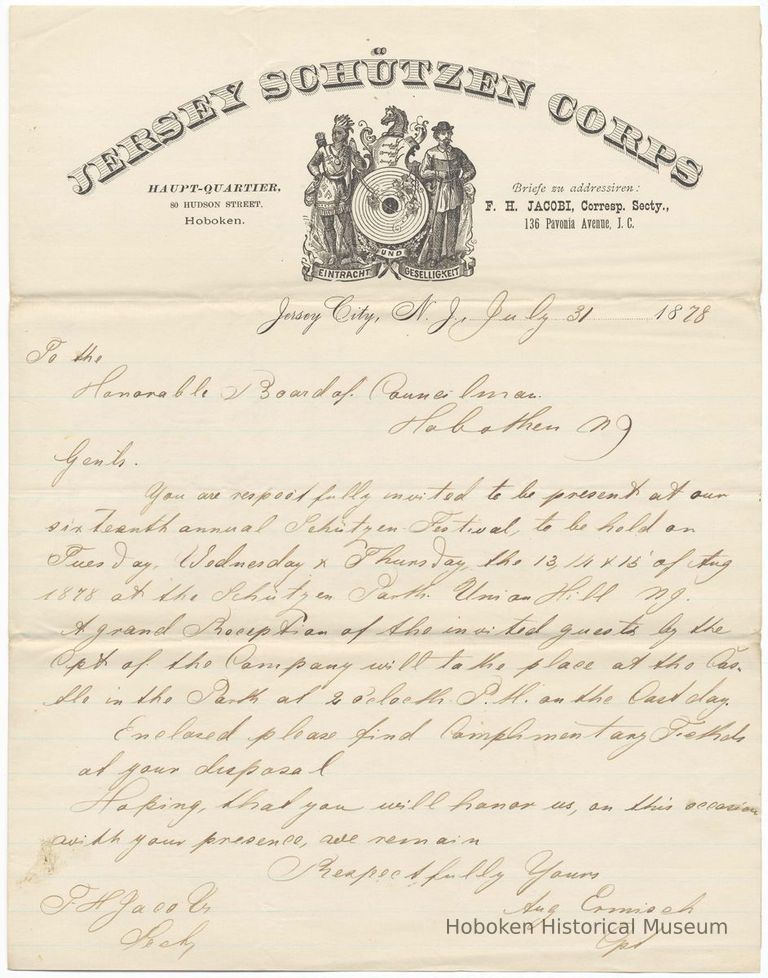 JERSEY SCHÜTZEN CORPS
HAUPT-QUARTIER,
80 HUDSON STREET,
Hoboken.
Briefe zu addressiren:
F. H. JACOBI, Corresp. Secty.,
136 Pavonia Avenue, J. C.
EINTRACHT UND GESELLIGKEIT
Jersey City, N. J., July 31 1878
To the
Honorable Board of Councilman
Hobothen NJ
Gents.
You are respectfully invited to be present at our
sixteenth annual Schützen Festival, to be held on
Tuesday, Wednesday & Thursday, the 13, 14 & 15 of Aug
1878 at the Schützen Park Union Hill NJ.
A grand Reception of the invited guests by the
Cpt of the Company will take place at the Cas-
tle in the Park at 2 o'clock P.M. on the last day.
Enclosed please find Complimentary Tickets
at your disposal
Hoping, that you will honor us, on this occasion
with your presence, we remain
Respectfully Yours
F H Jacobi Aug Ermisch
Secty Cpt
Hoboken Historical Museum